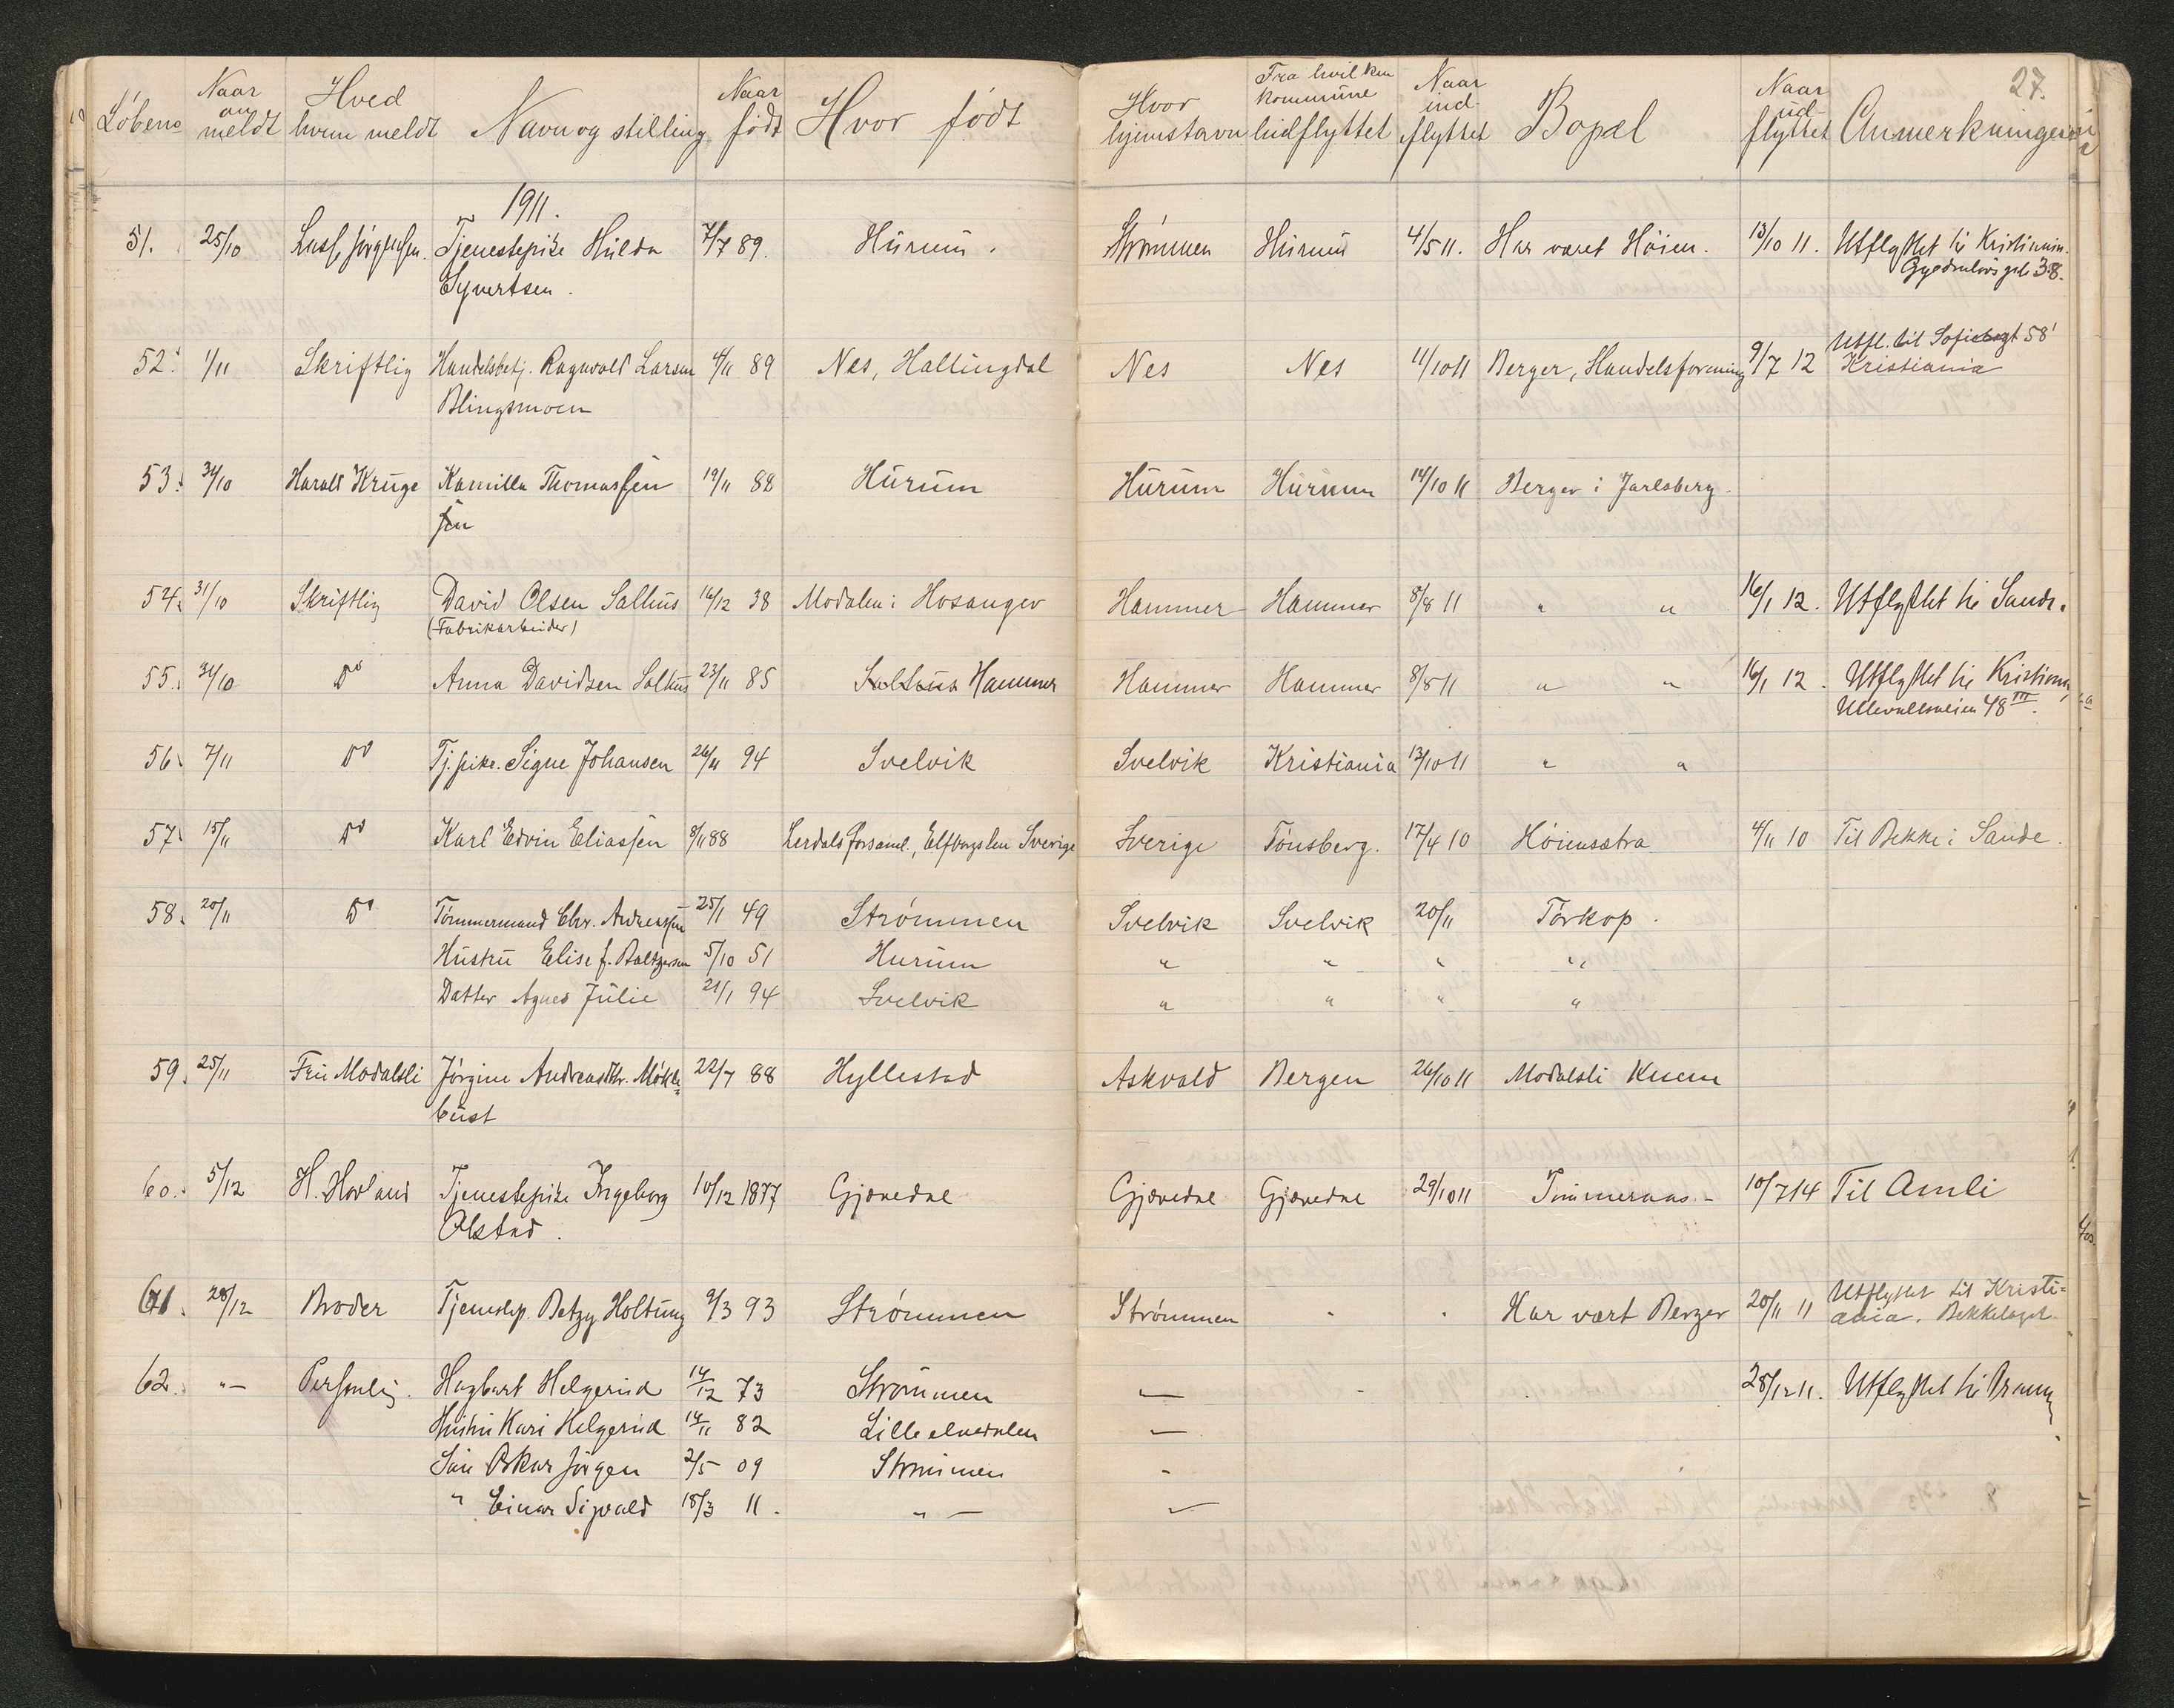 27.
Löbene Naar anmeldt Hved hvem meldt Navn og stilling Naar födt Hvor födt Hvor hjemstavn Fra hvilken kommune indflyttet Naar indflyttet Bopæl Naar udflyttet Anmerkninger
1911.
51. 25/10 Tjenestepike Hulda 7/7 89. Hurum. Strömmen Hurum 4/5 11. Har været Höien. 13/10 11. Utflyttet til Kristiania.
Syvertsen. 38.
52. 1/11 Skriftlig Handelsbetj. Ragnvald Larsen 4/11 89 Nes, Hallingdal Nes Nes 11/10 11 Berger, Handelsforening 9/7 12 Utfl. til Sofiebogt 58'
Blingsmoen Kristiania
53. 31/10 Harald Kruge Kamilla Thomassen 19/11 88 Hurum Hurum Hurum 14/10 11 Berger i Jarlsberg.
54. 31/10 Skriftlig David Olsen Salhus 16/12 38 Modalen i Hosanger Hammer Hammer 8/8 11 " " 16/1 12. Utflyttet til Sande.
(Fabrikarbeider)
55. 31/10 Do Anna Davidsen Salhus 23/11 85 Salhus Hammer Hammer Hammer 8/8 11 " " 16/1 12. Utflyttet til Kristiania,
Ullevaalsveien 48 III.
56. 7/11 Do Tj.pike. Signe Johansen 26/11 94 Svelvik Svelvik Kristiania 13/10 11 " "
57. 15/11 Do Karl Edvin Eliassen 8/11 88 Lerdals forsaml., Elfborgs len Sverige Sverige Tönsberg. 17/4 10 Höiensætra 4/11 10 Til Bekke i Sande.
58. 20/11 Do Tömmermand Chr. Andreassen 25/1 49 Strömmen Svelvik Svelvik 20/11 Törkop.
Hustru Elise f. Baltzersen 5/10 51 Hurum " " " "
Datter Agnes Julie 21/1 94 Svelvik " " " "
59. 25/11 Fru Modalsli Jörgine Andreasdtr. Mökle= 22/7 88 Hyllestad Askvold Bergen 26/10 11 Modalsli Knem
bust
60. 5/12 H. Hovland Tjenestepike Ingeborg 10/12 1877 Gjövedal Gjövedal Gjövedal 29/10 11 Timmeraas. - 10/7 14 Til Amli
Olstad.
61. 28/12 Broder Tjenestep. Betzy Holtung 9/3 93 Strömmen Strömmen - - Har vært Berger 20/11 11 Utflyttet til Kristi=
ania. Bekkelaget.
62. "— Personlig. Hagbart Helgerud 14/12 73 Strömmen — - 28/12 11. Utflyttet til
Hustru Kari Helgerud 14/11 82 Lille elvedalen —
Sön Oskar Jörgen 2/5 09 Strömmen -
" Einar Sigvald 18/3 11. " — —